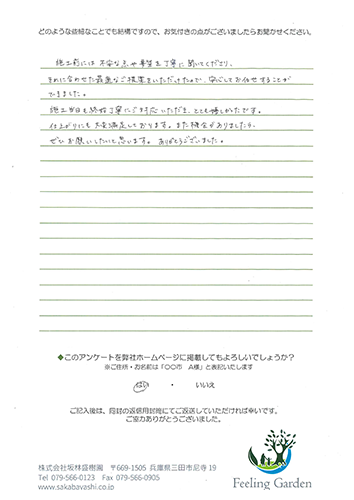 どのような些細なことでも結構ですので、お気付きの点がございましたらお聞かせください。
施工前には 不安な点や要望を丁寧に聞いてくださり、
それに合わせた最適なご提案をいただけたので、安心してお任せすることが
できました。
施工当日も終始丁寧にご対応いただき、とても嬉しかったです。
仕上がりにも大変満足しております。また機会がありましたら、
ぜひお願いしたいと思います。ありがとうございました。
◆このアンケートを弊社ホームページに掲載してもよろしいでしょうか？
※ご住所・お名前は「〇〇市 A様」と表記いたします
はい ・ いいえ
ご記入後は、同封の返信用封筒にてご返送していただければ幸いです。
ご協力ありがとうございました。
株式会社坂林盛樹園 〒669-1505 兵庫県三田市尼寺 19
Tel 079-566-0123 Fax 079-566-0905
www.sakabayashi.co.jp
Feeling Garden